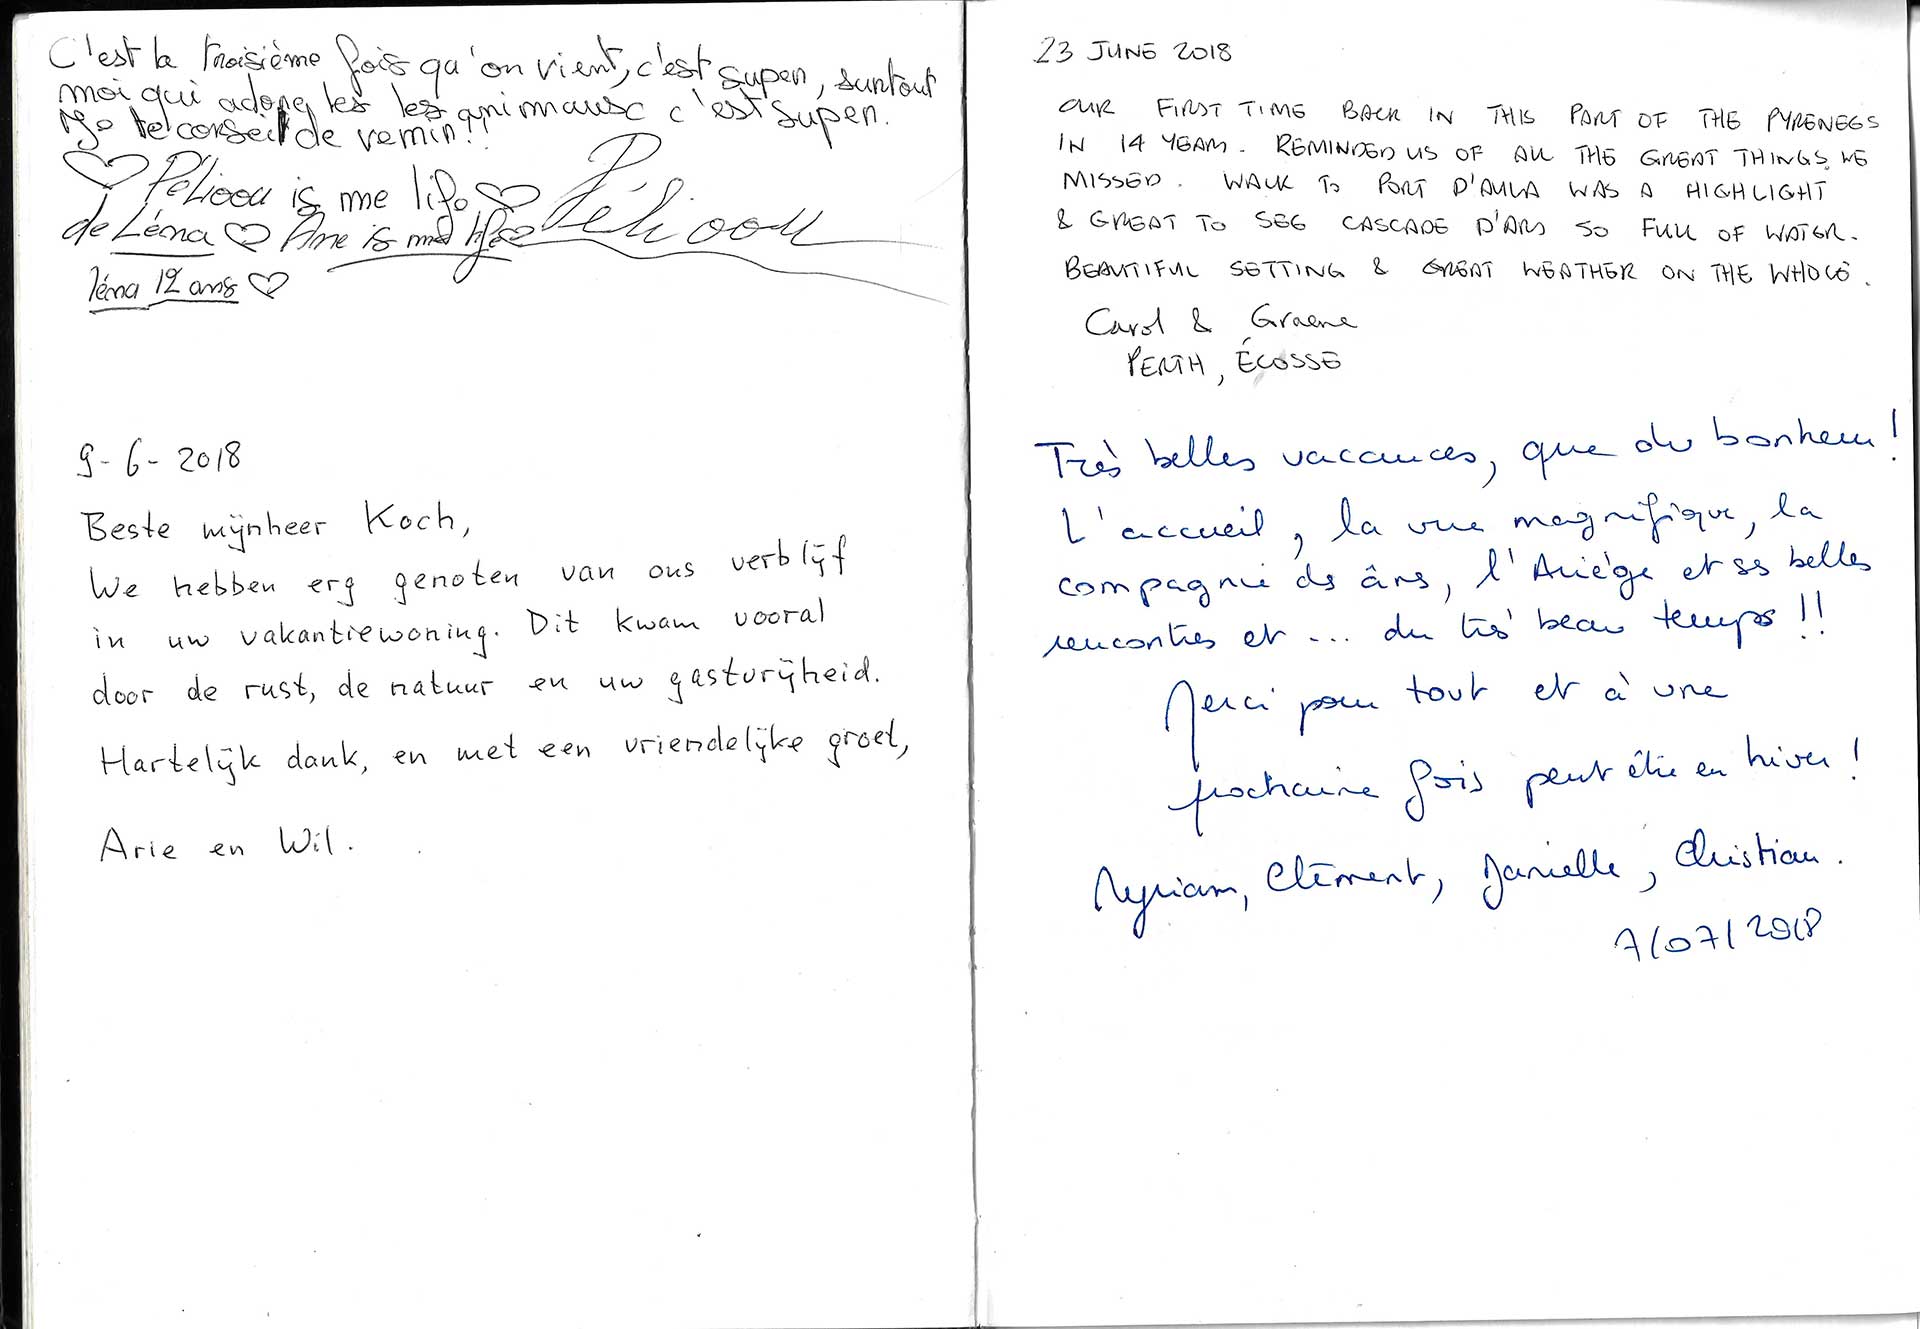 C'est la troisième fois qu'on vient, c'est super, surtout
moi qui adore les les animausc c'est super.
Je te conseil de venir!!
♡ Pélioou is me life ♡ Pélioou
de Léna ♡ Ane is me life
léna 12 ans ♡
9-6-2018
Beste mijnheer Koch,
We hebben erg genoten van ons verblijf
in uw vakantiewoning. Dit kwam vooral
door de rust, de natuur en uw gastvrijheid.
Hartelijk dank, en met een vriendelijke groet,
Arie en Wil.
23 JUNE 2018
OUR FIRST TIME BACK IN THIS PART OF THE PYRENEES
IN 14 YEARS. REMINDED US OF ALL THE GREAT THINGS WE
MISSED. WALK TO PORT D'AULA WAS A HIGHLIGHT
& GREAT TO SEE CASCADE D'ARS SO FULL OF WATER.
BEAUTIFUL SETTING & GREAT WEATHER ON THE WHOLE.
Carol & Graeme
PERTH, ÉCOSSE
Très belles vacances, que du bonheur!
L'accueil, la vue magnifique, la
compagnie des ânes, l'Ariège et ses belles
rencontres et ... du très beau temps!!
Merci pour tout et à une
prochaine fois peut être en hiver!
Myriam, Clément, Danielle, Christian.
7/07/2018